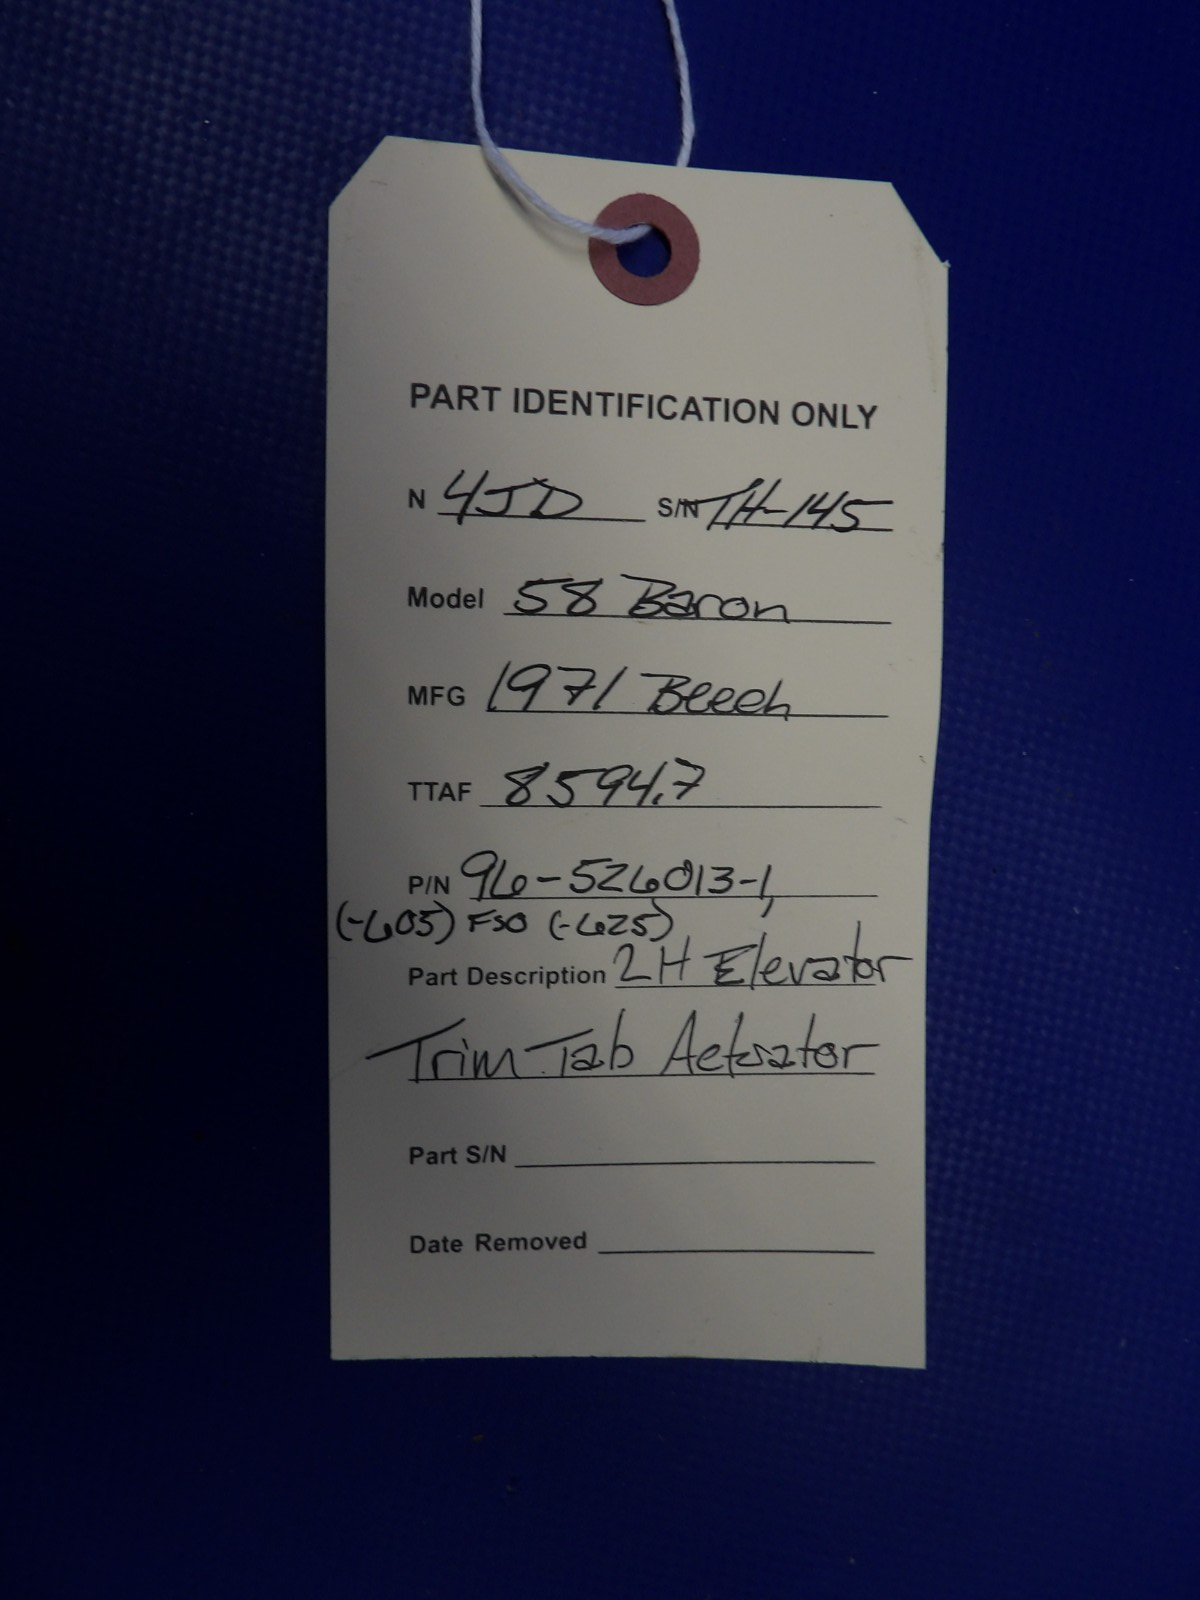 PART IDENTIFICATION ONLY
N 4JD S/N TH-145
Model 58 Baron
MFG 1971 Beech
TTAF 8594.7
P/N 96-526013-1,
(-605) FSO (-625)
Part Description LH Elevator
Trim Tab Actuator
Part S/N
Date Removed